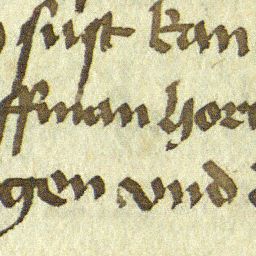 sust kan
ffman hor
gen vnd